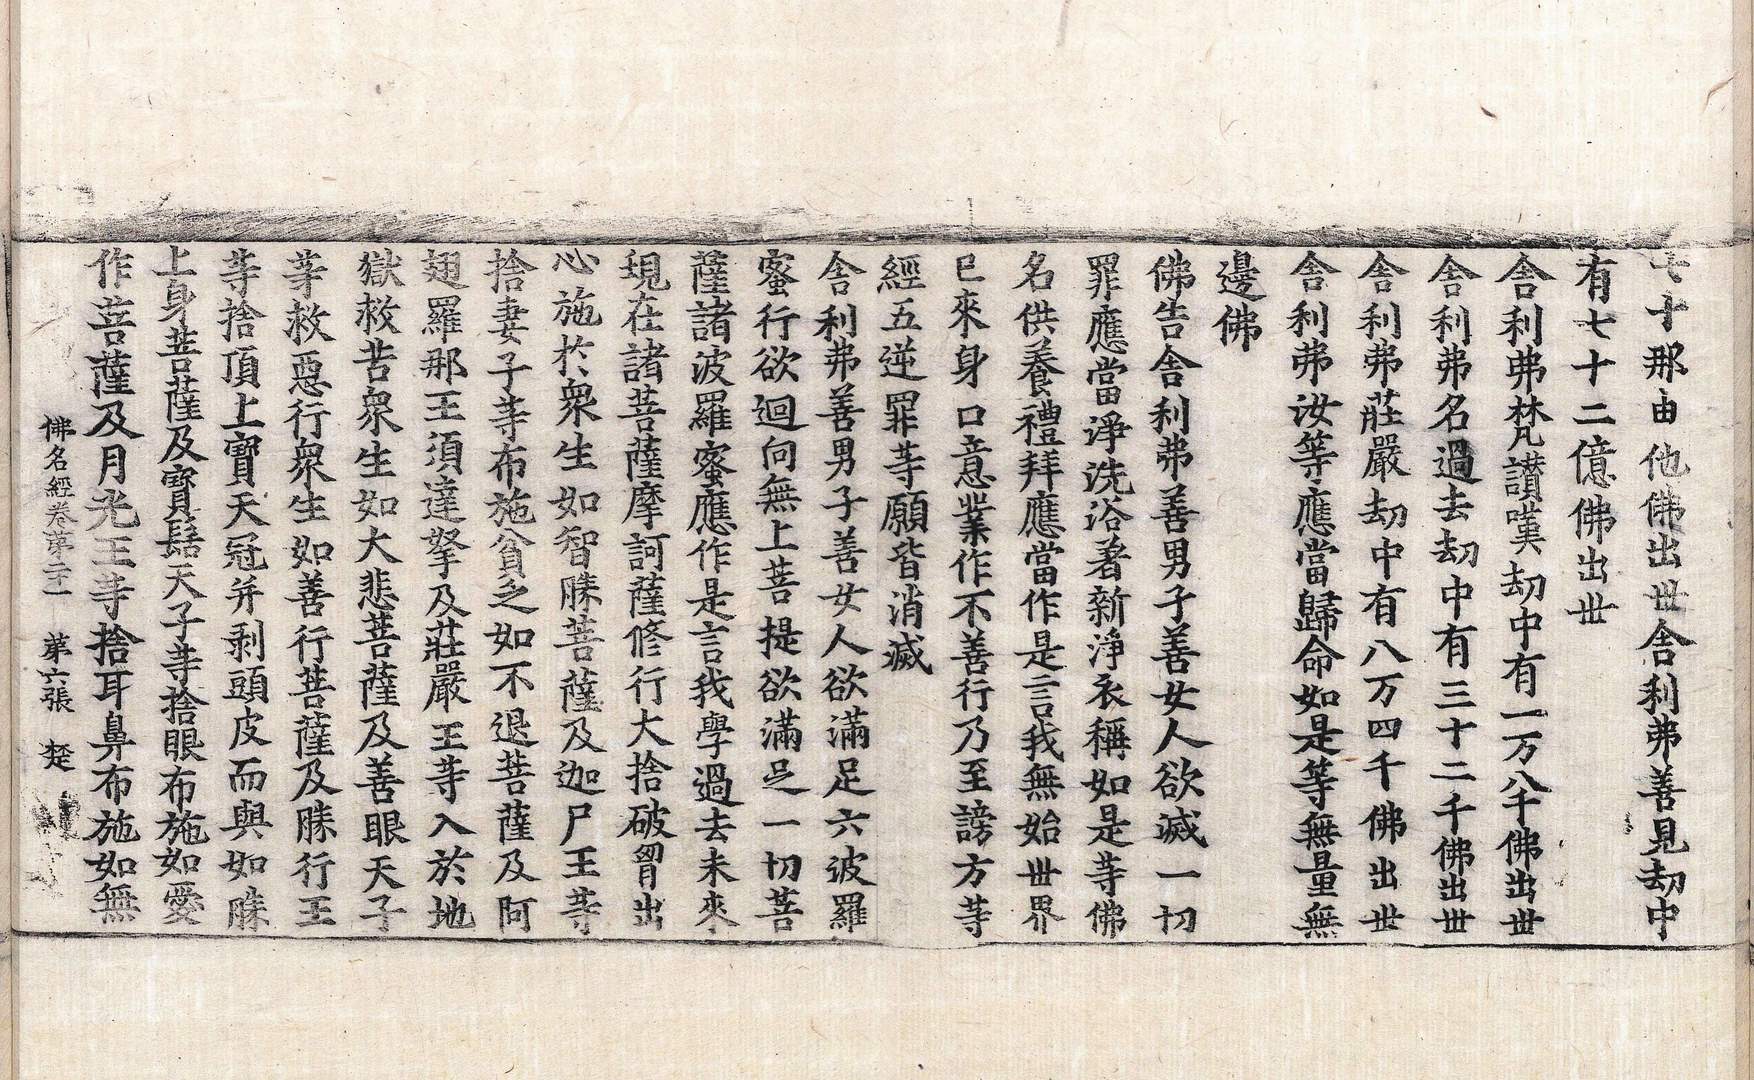 七十那由他佛出世舍利弗善見劫中
有七十二億佛出世
舍利弗梵讃嘆劫中有一万八千佛出世
舍利弗名過去劫中有三十二千佛出世
舍利弗莊嚴劫中有八万四千佛出世
舍利弗汝等應當歸命如是等無量無
邊佛
佛告舍利弗善男子善女人欲滅一切
罪應當淨洗浴著新淨衣稱如是等佛
名供養禮拜應當作是言我無始世界
已來身口意業作不善行乃至謗方等
經五逆罪等願皆消滅
舍利弗善男子善女人欲滿足六波羅
蜜行欲迴向無上菩提欲滿足一切菩
薩諸波羅蜜應作是言我學過去未來
現在諸菩薩摩訶薩修行大捨破胷出
心施於衆生如智勝菩薩及迦尸王等
捨妻子等布施貧乏如不退菩薩及阿
翅羅那王須達拏及莊嚴王等入於地
獄救苦衆生如大悲菩薩及善眼天子
等救惡行衆生如善行菩薩及勝行王
等捨頂上寶天冠并剥頭皮而與如勝
上身菩薩及寶髻天子等捨眼布施如愛
作菩薩及月光王等捨耳鼻布施如無
佛名經卷第二十一 第六張 楚